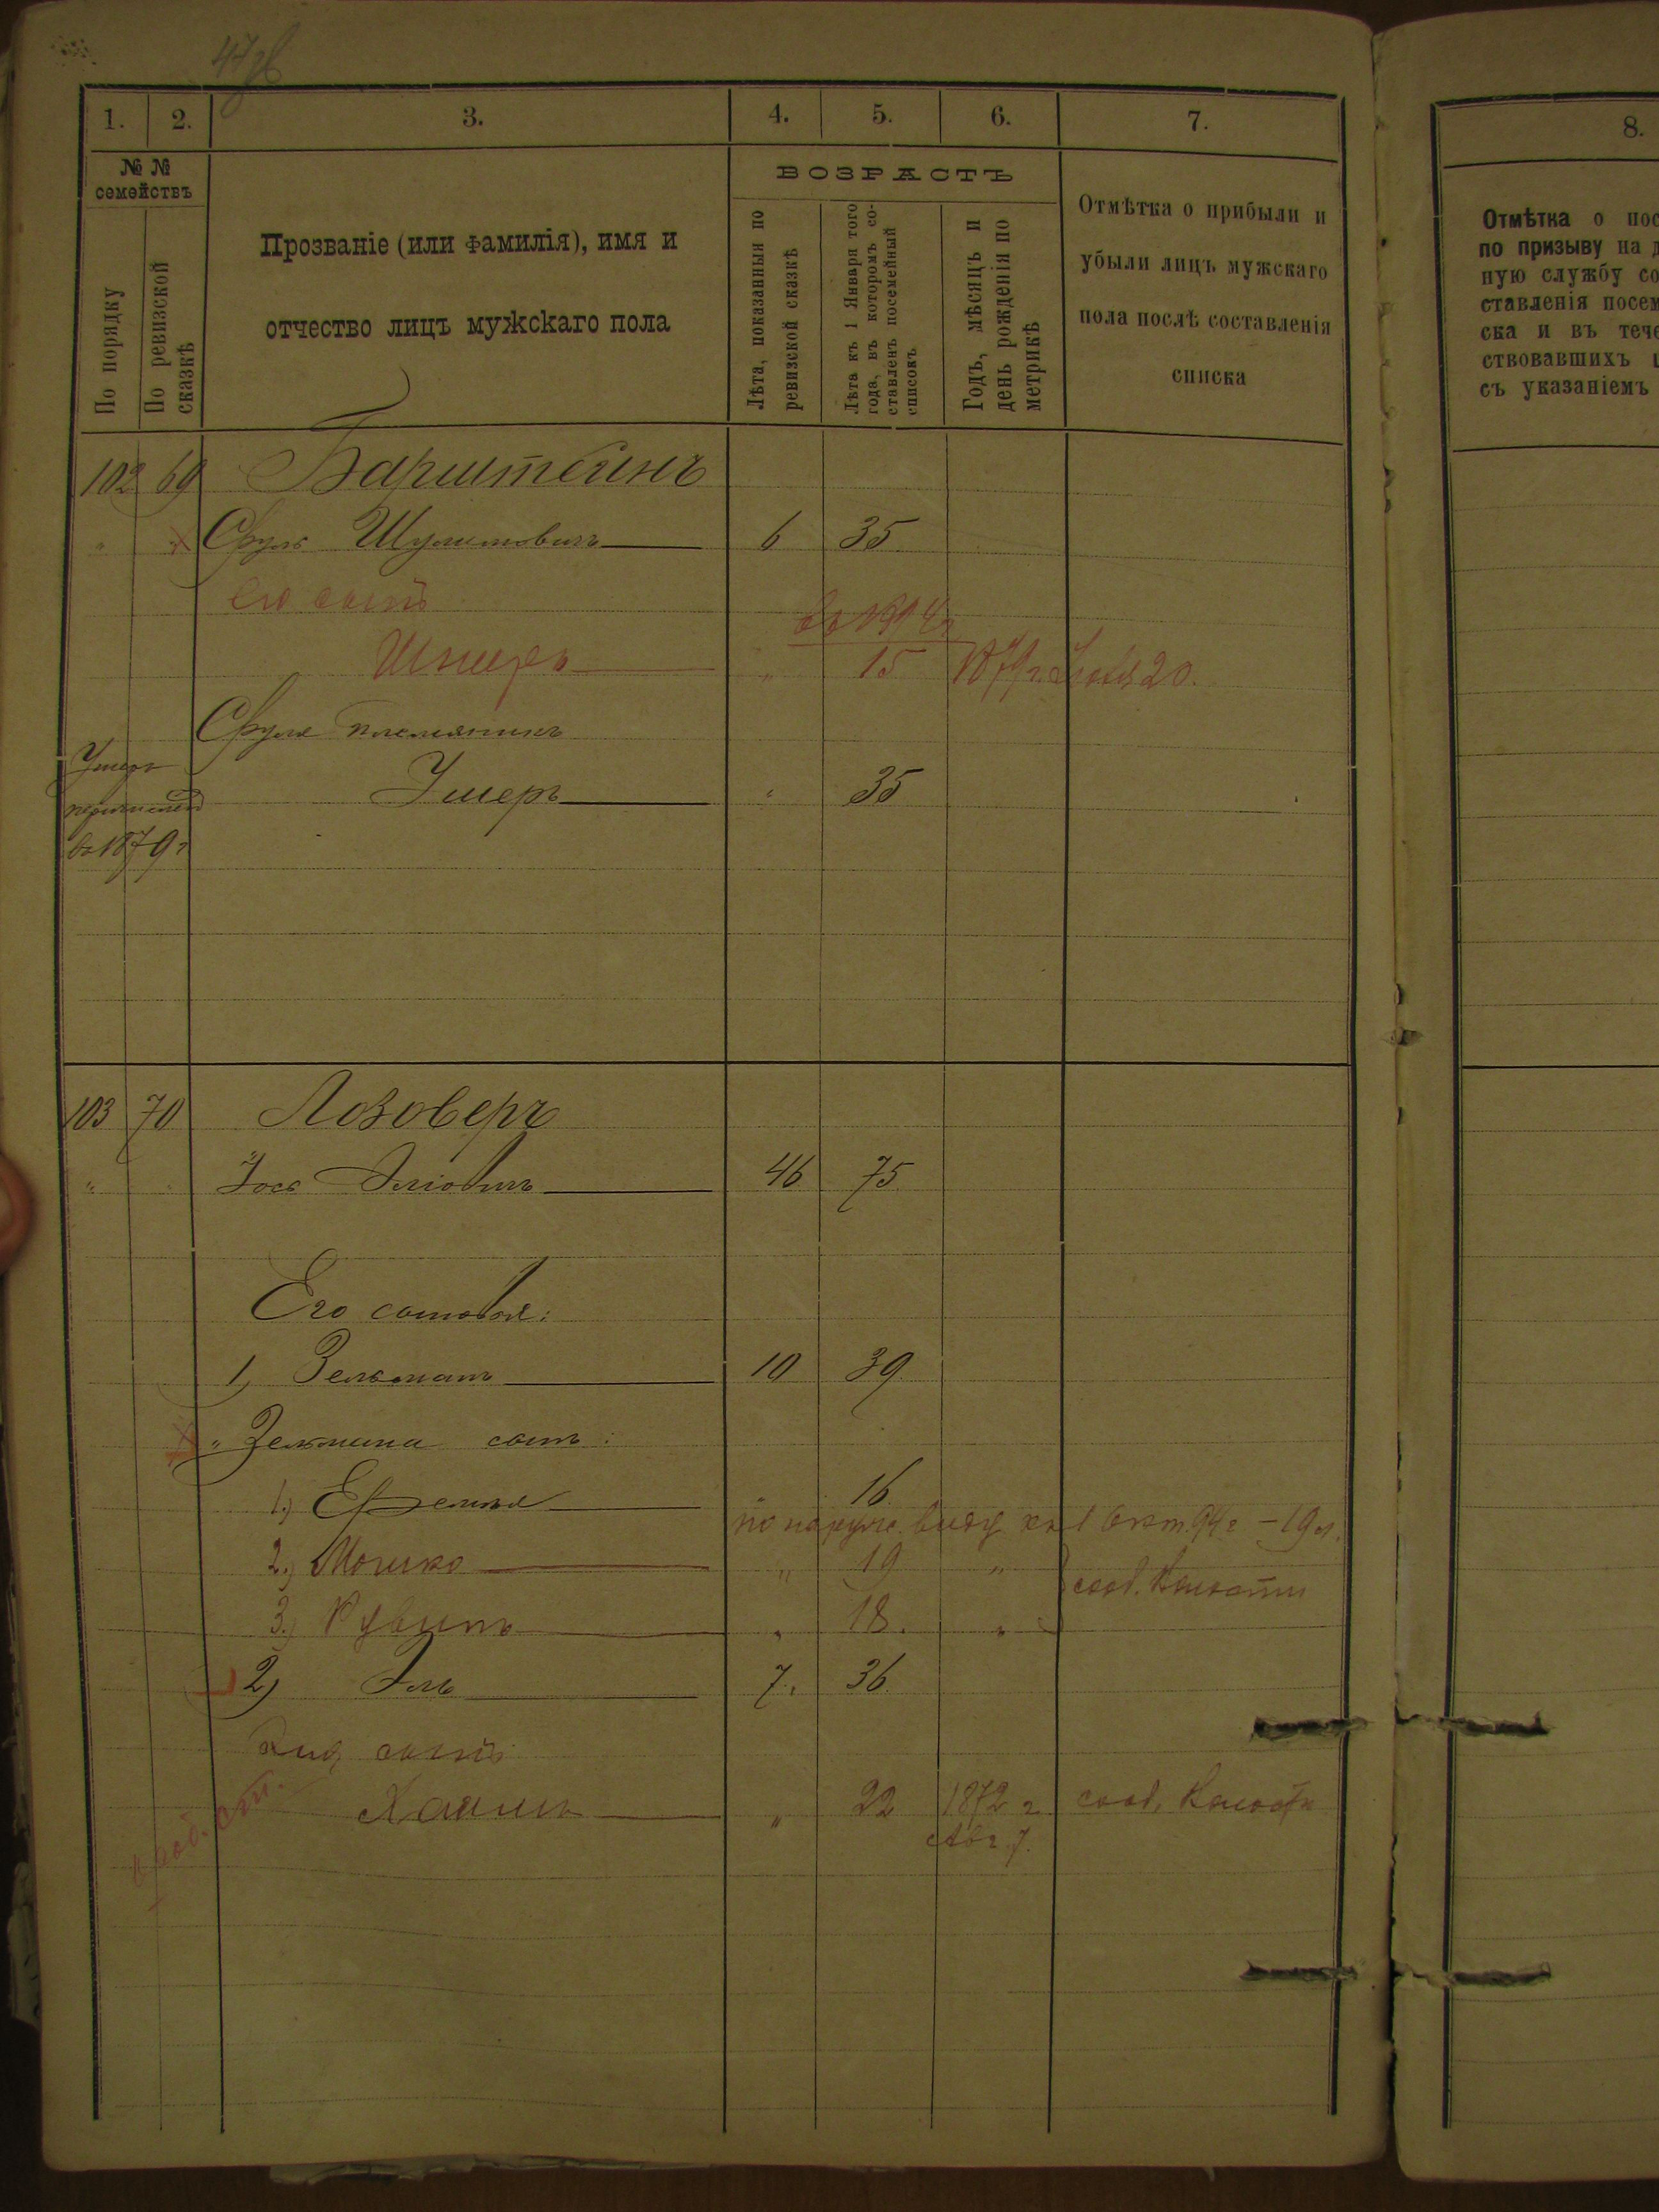 1. 2. 3. 4. 5. 6. 7.
№ №
семействъ
По порядку
По ревизской
сказкѣ
Прозваніе (или фамилія), имя и
отчество лицъ мужскаго пола
ВОЗРАСТЪ
Лѣта, показанныя по
ревизской сказкѣ
Лѣта къ 1 Января того
года, въ которомъ со-
ставленъ посемейный
списокъ
Годъ, мѣсяцъ и
день рожденія по
метрикѣ
Отмѣтка о прибыли и
убыли лицъ мужскаго
пола послѣ составленія
списка
102 69 Барштейнъ
" Сруль Шулимовичъ 6 35
его сынъ
въ 1894 г
" 15 1879 г. 20.
Сруля племянникъ
Умеръ " 35
въ 1879 г
103 70 Лозоверъ
" Іось Эліовичъ 46 75
Его сыновья:
1, Зельманъ 10 39
" Зельмана сынъ:
1.) 16
по наруж. виду къ 1 Окт. 94 г – 19 л.
2.) Мошко " 19 "
3.) Рувинъ " 18. "
2) Эль 7. 36
сынъ
Хаимъ " 22 1872 г
Авг 7.
8.
Отмѣтка о пос
по призыву на д
ную службу со
ставленія посем
ска и въ тече
ствовавшихъ
съ указаніемъ